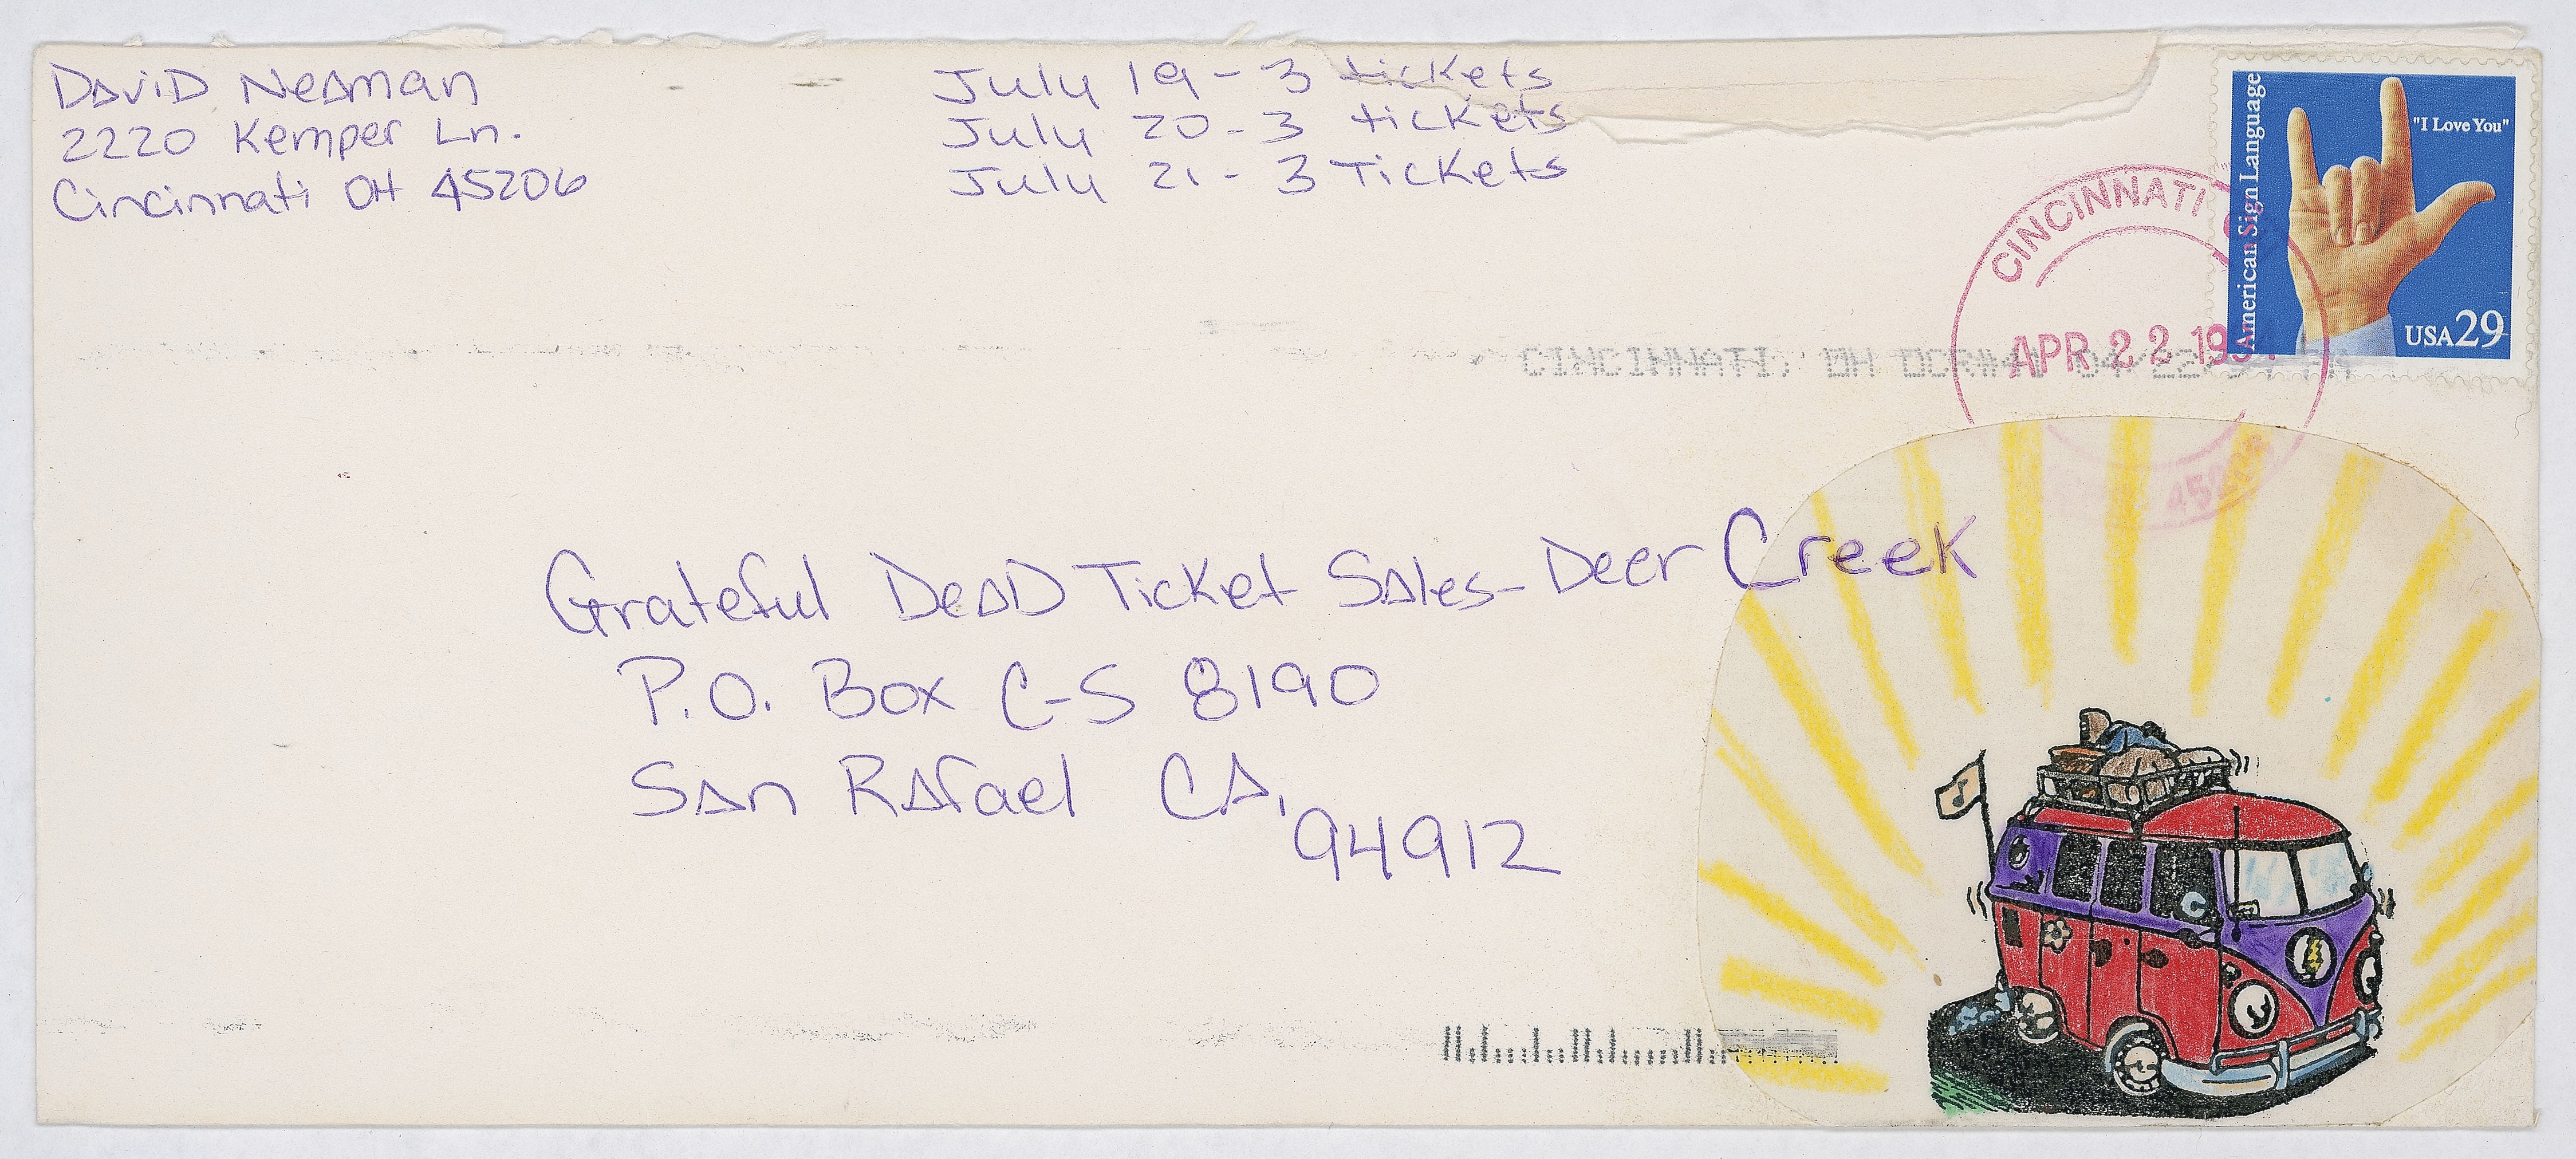 DAviD NeAman
2220 Kemper Ln.
Cincinnati OH 45206
July 19 - 3 tickets
July 20 - 3 tickets
July 21 - 3 Tickets
American Sign Language
"I Love You"
USA 29
CINCINNATI
APR 22 19
CINCINNATI, OH
Grateful DeAD Ticket SAles - Deer Creek
P.O. Box C-S 8190
SAn RAfael CA,
94912